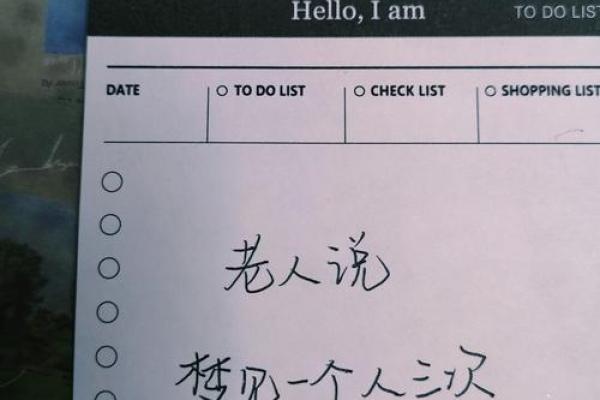 Hello, I am TO DO LIST
DATE TO DO LIST CHECK LIST SHOPPING LIST
老人说
梦见一个人三次